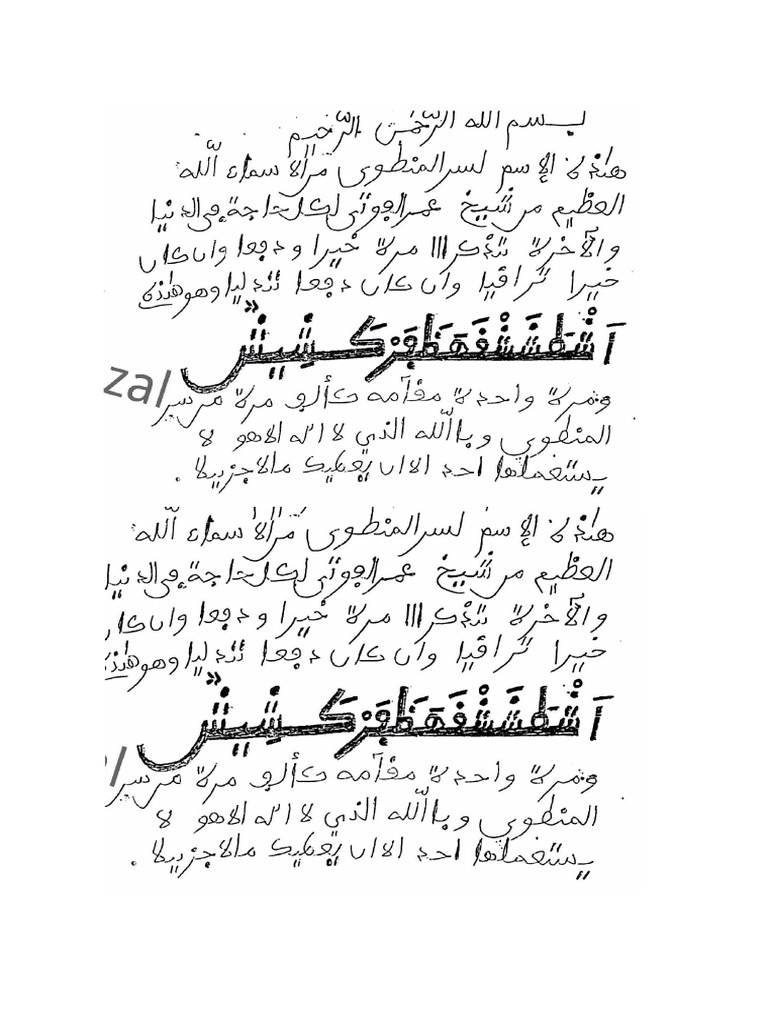 بسم الله الرّحمن الرّحيم
هذه الإسم لسر المنطوى من الأسماء الله
العظيم من شيخ عمر الفوتى لكل حاجة فى الدنيا
والآخرة تذكر مرة خيرا و دفعا وان كان
خيرا وان كان دفعا وهو هذه
ومرة واحدة مقامه كألف مرة من سر
المنطوي و باالله الذي لا اله الا هو لا
يستعملها احد الا ان يعطيك مالا جزيلا .
zal
هذه الإسم لسر المنطوى من الأسماء الله
العظيم من شيخ عمر الفوتى لكل حاجة فى الدنيا
والآخرة تذكر مرة خيرا و دفعا وان كان
خيرا وان كان دفعا وهو هذه
ومرة واحدة مقامه كألف مرة من سر
المنطوي و باالله الذي لا اله الا هو لا
يستعملها احد الا ان يعطيك مالا جزيلا .